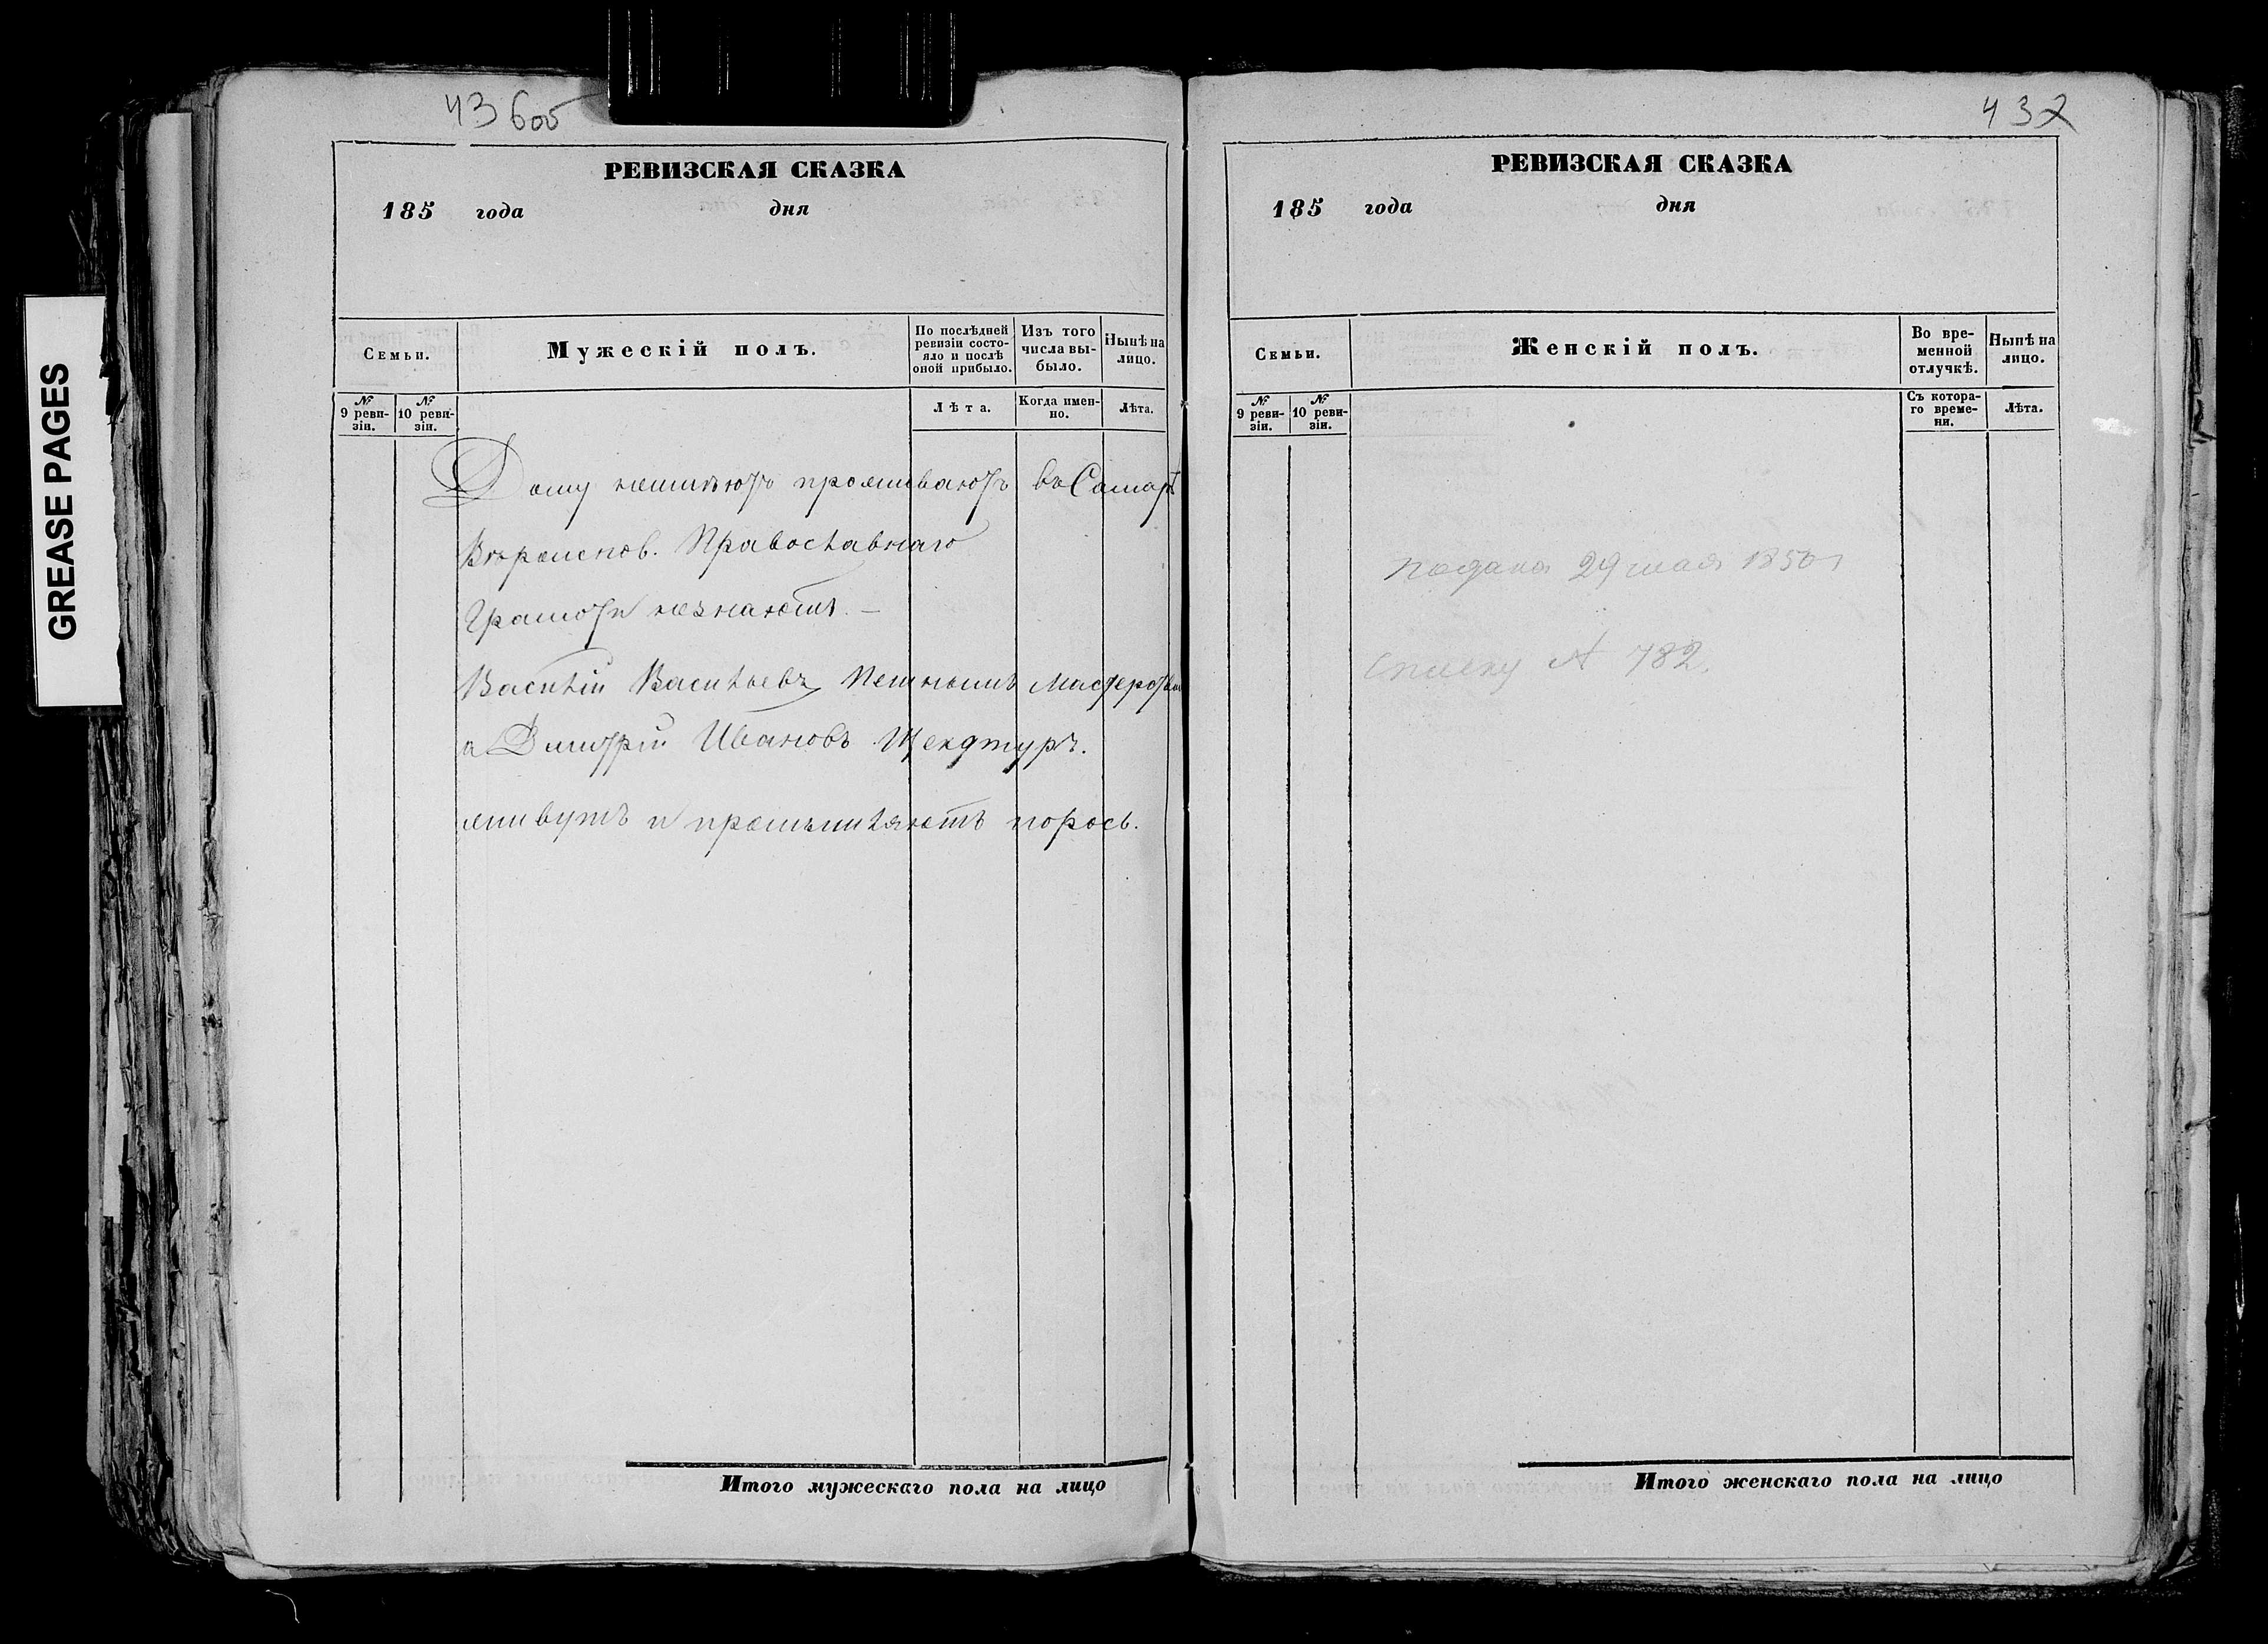 43боб
РЕВИЗСКАЯ СКАЗКА
185 года дня
Семьи.
Мужескій полъ.
По послѣдней ревизіи состояло и послѣ оной прибыло.
Изъ того числа выбыло.
Нынѣ на лицо.
№ 9 ревизіи.
№ 10 ревизіи.
Лѣта.
Когда именно.
Лѣта.
Дому неимѣютъ проживаютъ въ Самарѣ
Вѣроиспов. Православнаго
Грамоти незнаютъ. —
Василій Васильевъ Печнымъ Мастеромъ
а Дмитрій Ивановъ
живутъ и промышляютъ порось.
Итого мужескаго пола на лицо
432
РЕВИЗСКАЯ СКАЗКА
185 года дня
Семьи.
Женскій полъ.
Во временной отлучкѣ.
Нынѣ на лицо.
№ 9 ревизіи.
№ 10 ревизіи.
Съ котораго времени.
Лѣта.
Подана 29 мая 1850
782.
Итого женскаго пола на лицо
GREASE PAGES